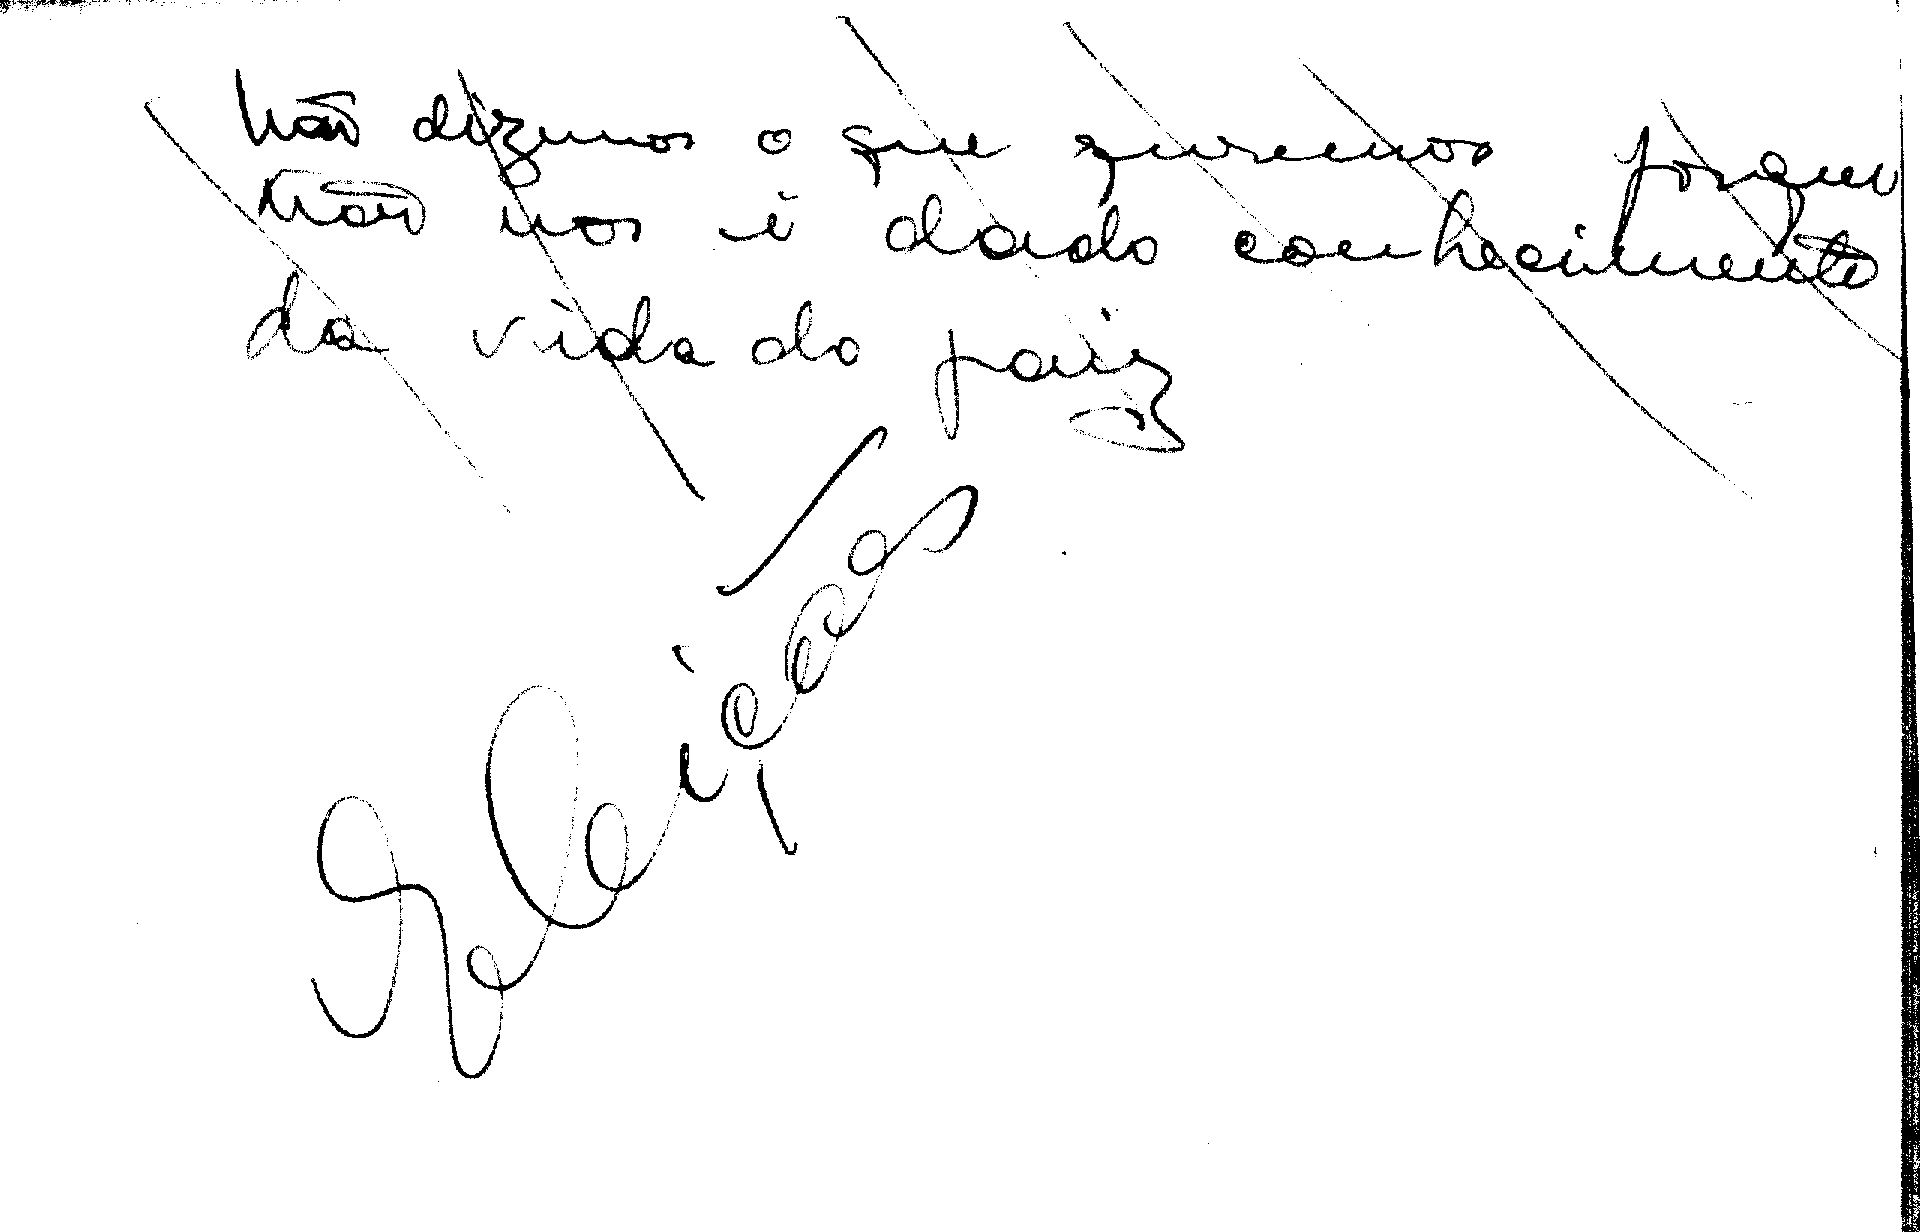 Não dizemos o que queremos porque
não nos é dado conhecimento
da vida do paiz
Eleições